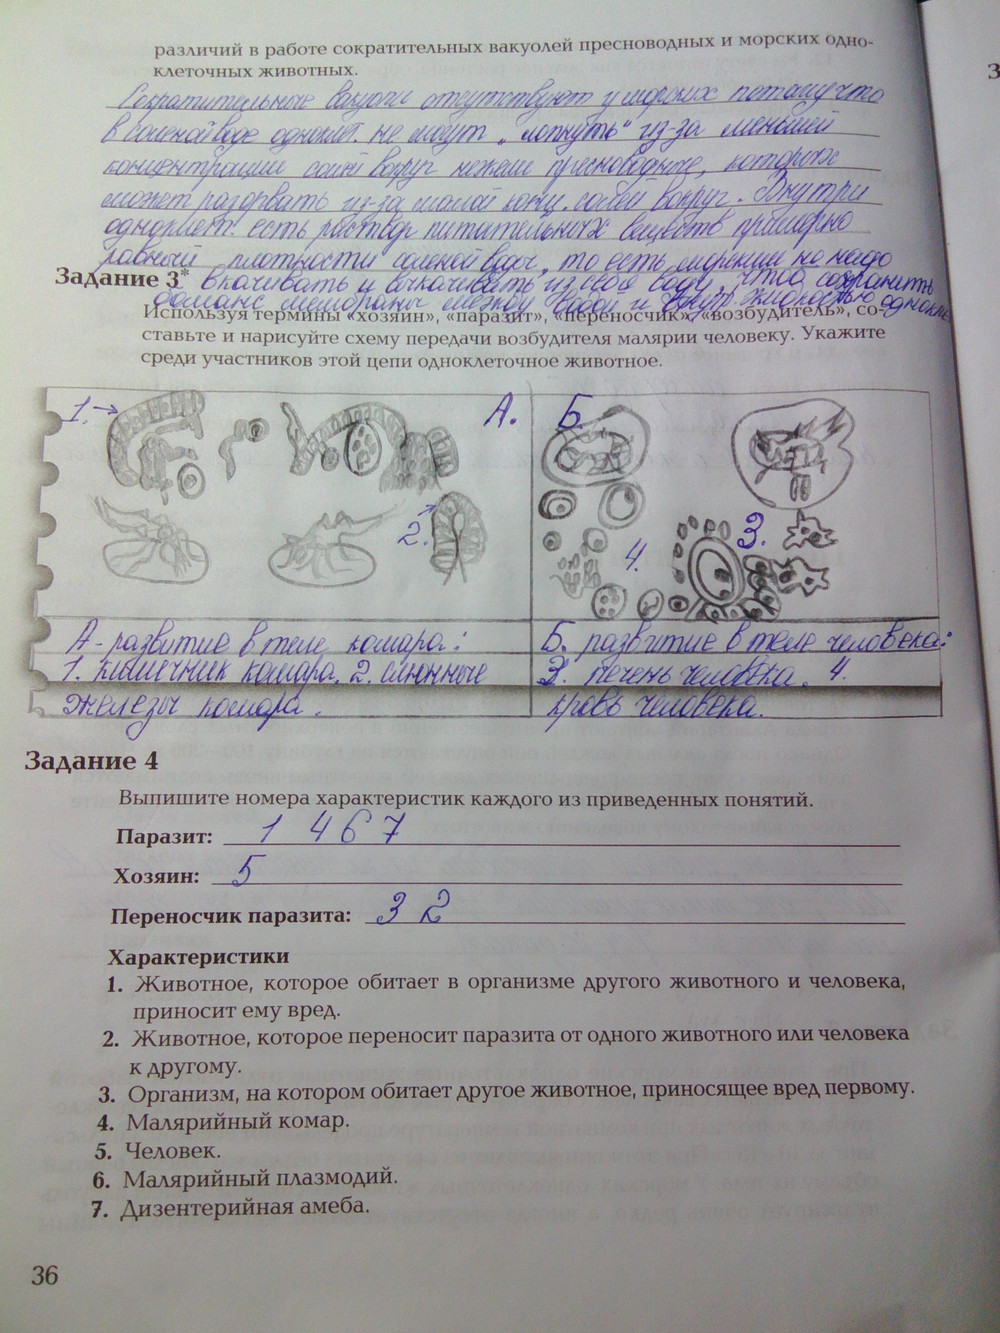 различий в работе сократительных вакуолей пресноводных и морских одно-
клеточных животных.
Сократительные вакуоли отсутствуют у морских потому что
в соленой воде однокл. не могут „лопнуть“ из-за меньшей
концентрации солей вокруг нежели пресноводные, которых
может разорвать из-за малой конц. солей вокруг. Внутри
одноклет. есть раствор питательных веществ примерно
равный плотности соленой воды, то есть морским не надо
Задание 3*
вкачивать и выкачивать из себя воду, чтоб сохранить
баланс мембраны между водой и внут. жидкостью
Используя термины «хозяин», «паразит», «переносчик», «возбудитель», со-
ставьте и нарисуйте схему передачи возбудителя малярии человеку. Укажите
среди участников этой цепи одноклеточное животное.
1. А. Б.
2. 4. 3.
А - развитие в теле комара:
1. кишечник комара. 2. слюнные
железы комара.
Б. развитие в теле человека:
3. печень человека. 4.
кровь человека.
Задание 4
Выпишите номера характеристик каждого из приведенных понятий.
Паразит: 1 4 6 7
Хозяин: 5
Переносчик паразита: 3 2
Характеристики
1. Животное, которое обитает в организме другого животного и человека,
приносит ему вред.
2. Животное, которое переносит паразита от одного животного или человека
к другому.
3. Организм, на котором обитает другое животное, приносящее вред первому.
4. Малярийный комар.
5. Человек.
6. Малярийный плазмодий.
7. Дизентерийная амеба.
36